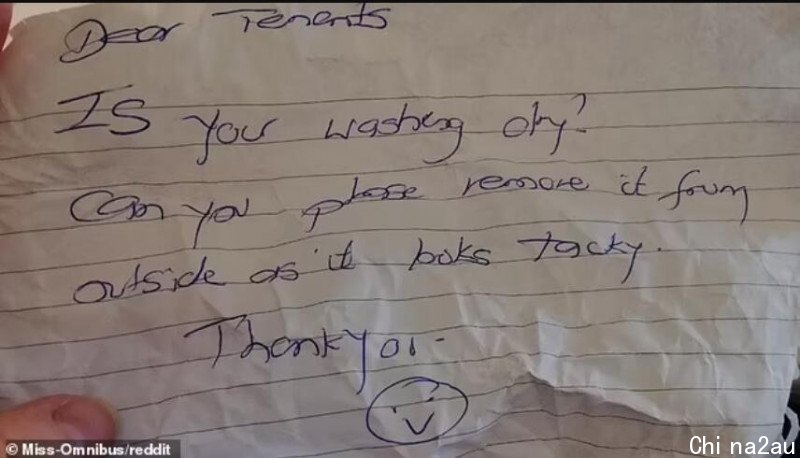 Dear Tenents
Is your washing dry?
Can you please remove it from
outside as it looks tacky.
Thankyou.
© Miss-Omnibus/reddit
Chi na2au